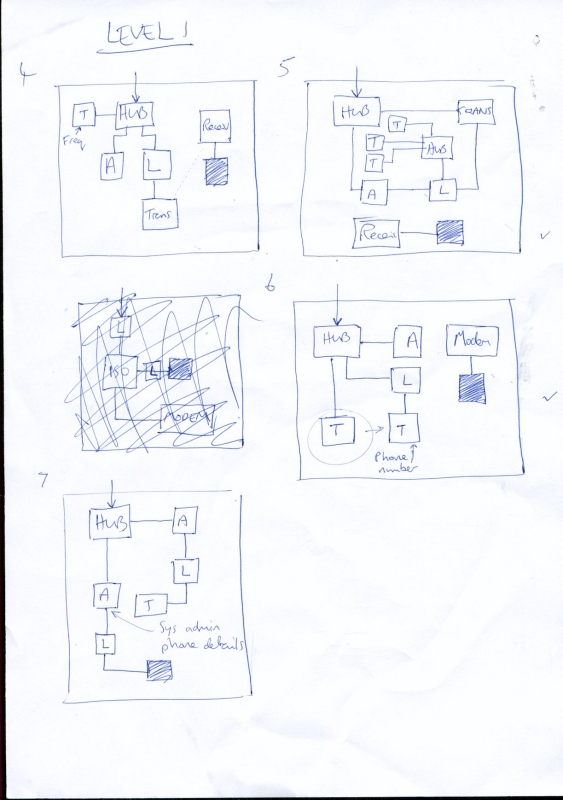 LEVEL 1
4
T
HUB
Freq
A
L
Trans
Receiv
5
HUB
TRANS
T
T
T
HUB
A
L
Receiv
L
ISO
L
MODEM
6
HUB
A
Modem
L
T
T
Phone
number
7
HUB
A
L
A
T
Sys admin
phone details
L